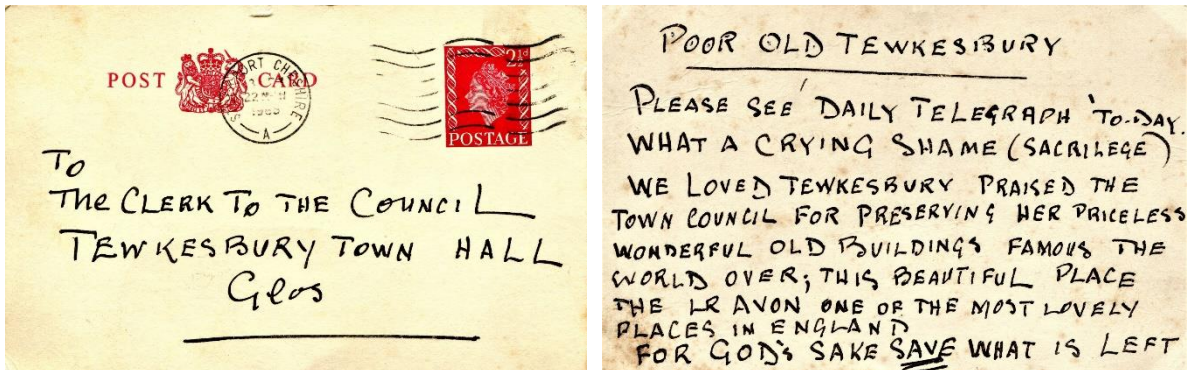 POST CARD
STOCKPORT CHESHIRE
1963
A
2½d
POSTAGE
To
The CLERK To THE COUNCIL
TEWKESBURY TOWN HALL
Glos
POOR OLD TEWKESBURY
PLEASE SEE 'DAILY TELEGRAPH' TO-DAY.
WHAT A CRYING SHAME (SACRILEGE)
WE LOVED TEWKESBURY PRAISED THE
TOWN COUNCIL FOR PRESERVING HER PRICELESS
WONDERFUL OLD BUILDINGS FAMOUS THE
WORLD OVER; THIS BEAUTIFUL PLACE
THE LR AVON ONE OF THE MOST LOVELY
PLACES IN ENGLAND
FOR GOD'S SAKE SAVE WHAT IS LEFT